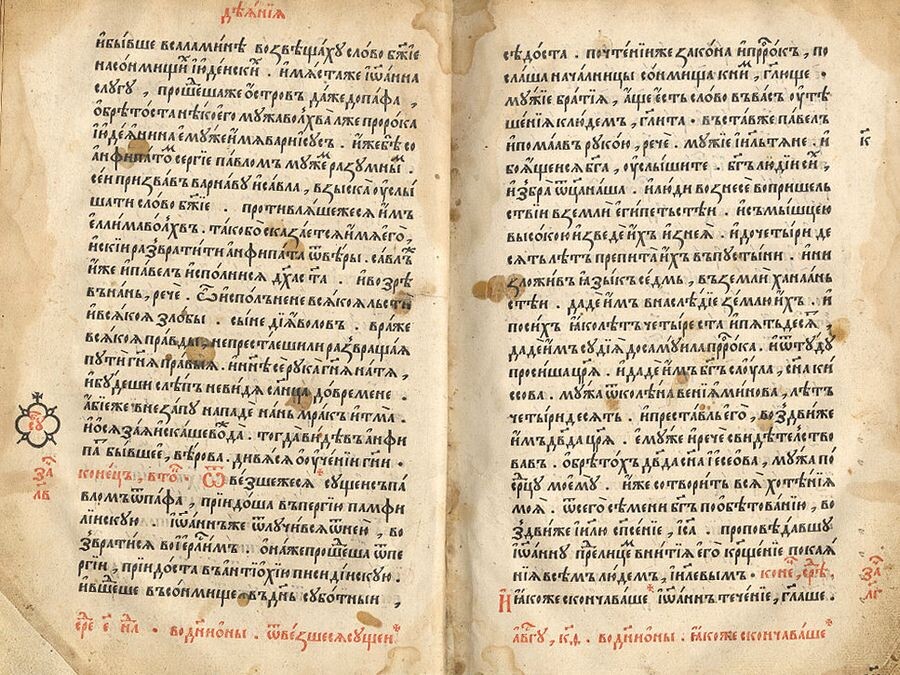 дѣѧ́нїѧ
и҆бы́вше всаламинѣ возвѣща́хꙋ сло́во бж҃їе
насонмищи і҆ꙋде́йски. и҆мѧ́ста же і҆ѡа́нна
слꙋгꙋ̀, проше́дша же о҆стровъ да́же до па́фа,
ѡ҆брѣто́ста нѣ́коего мꙋ́жа волхва̀ лже проро́ка
і҆ꙋде́ѧнина є҆мꙋ́же и҆́мѧ варїисꙋсъ. и҆́же бѣ̀ со
а҆нфѵпатом се́ргїемъ па́вломъ мꙋ́жемъ разꙋ́мнымъ.
се́й призва́въ варна́вꙋ и҆ са́вла, взыска̀ ᲂу҆слы́
шати сло́во бж҃їе. противлѧ́шесѧ же и҆́мъ
є҆ли́ма волхвъ. та́ко бо сказа́етсѧ и҆́мѧ є҆го̀,
и҆скі̀й разврати́ти а҆нфѵпа́та ѿ вѣ́ры. са́влъ
и҆́же и҆ па́велъ и҆спо́лнисѧ дх҃а ст҃а. и҆ возрѣ́
въ на́нь, речѐ. ѽ и҆спо́лнене всѧ́коѧ льсти
и҆ всѧ́коѧ ѕло́бы. сы́не дїа́волов. вра́же
всѧ́коѧ пра́вды, не преста́еши ли развраща́ѧ
пꙋти̑ гн҃ѧ пра́выѧ. и҆ ны́нѣ сѐ рꙋка̀ гн҃ѧ на тѧ̀,
и҆ бꙋ́деши слѣ́пъ не ви́дѧ сл҃нца до вре́мене.
а҆́бїе же внеза́пꙋ нападѐ на́нь мра́къ и҆ тма̀.
и҆ ѡ҆сѧза́ѧ и҆ска́ше вожда̀. тогда̀ ви́дѣвъ а҆нфѵ
па́тъ бы́вшее, вѣ́рова. дивѧ́сѧ ѡ҆ ᲂу҆че́нїи гн҃и.
коне́цъ, вто́р. Ѿве́зшесѧ сꙋ́щеи съ па́
вломъ ѿ па́фа, прїидо́ша въ пергі́ю памфи
лі́йскꙋю. і҆ѡа́ннъ же ѿлꙋчи́всѧ ѿ нею̀, во
зврати́сѧ во і҆ерл҃имъ. ѻ҆на́ же проше́дша ѿ пе
ргі́и, прїидо́ста въ а҆нтїохі́ю писиді́йскꙋю.
и҆ вше́дше въ со́нмище въ дн҃ь сꙋббо́тныи,
Ѿве́зшесѧ сꙋ́щеи
сѣдо́ста. по чте́нїи же зако́на и҆ прⷪ҇рокъ, по
сла́ша нача́лницы со́нмища к ни́м, гл҃юще.
мꙋ́жїе бра́тїѧ, а҆́ще є҆́сть сло́во въ ва́съ ᲂу҆тѣ
ше́нїѧ к лю́демъ, гл҃ита. въста́в же па́велъ
и҆ пома́авъ рꙋко́ю, речѐ. мꙋ́жїе і҆и҃льтѧне. и҆
боѧ́щеисѧ бг҃а, ᲂу҆слы́шите. бг҃ъ люді́й си́х,
и҆збра̀ ѻ҆ц҃а на́ша. и҆ лю́ди вознесѐ во прише́ль
ствїи въ землѝ є҆гѵ́петьстѣи. и҆ съ мы́шцею
высо́кою и҆зведѐ и҆́хъ и҆з неѧ̀. и҆ до четы́ри де
сѧтъ лѣ́тъ препита̀ и҆́хъ въ пꙋсты́ни. и҆ ни
зложи́в ꙗ҆зы́къ се́дмь, въ землѝ ханаа́нь
стѣ́и. дадѐ и҆́мъ в наслѣ́дїе зе́млю и҆́хъ. и҆
по си́хъ ꙗ҆́ко лѣ́тъ четы́реста и҆ пѧтьдесѧ́т,
дадѐ и҆́мъ сꙋдїѧ̀ до самꙋи́ла прⷪ҇рока. и҆ ѿтꙋ́дꙋ
проси́ша цр҃ѧ. и҆ дадѐ и҆́мъ бг҃ъ саꙋ́ла, сн҃а ки
сова. мꙋ́жа ѿ колѣ́на венїами́нова, лѣ́тъ
четы́ридесѧть. и҆ преста́вль є҆го̀, воздви́же
и҆́мъ дв҃да цр҃ѧ. є҆мꙋ́же и҆ речѐ свидѣ́тельство
вавъ. ѡ҆брѣто́хъ дв҃да сн҃а і҆ессе́ова, мꙋ́жа по
срц҃ꙋ моемꙋ̀. и҆́же сотвори́тъ всѧ̀ хотѣ́нїѧ
моѧ̀. ѿ сего̀ сѣ́мени бг҃ъ по ѡ҆бѣтова́нїю, во
здви́же і҆и҃лю сп҃се́нїе, і҆с҃а. проповѣ́давшꙋ
і҆ѡа́ннꙋ пре́д лице́м вни́тїѧ є҆го̀ кр҃ще́нїе покаѧ́
нїѧ всѣ́мъ лю́демъ, і҆и҃левымъ. коне́ц, сре́дѣ.
И҆ ꙗ҆́коже сконча́ваше і҆ѡа́ннъ тече́нїе, гл҃аше.
а҆́вгꙋ, к҃д. во дни ѻ҆́ны. ꙗ҆́коже сконча́ваше